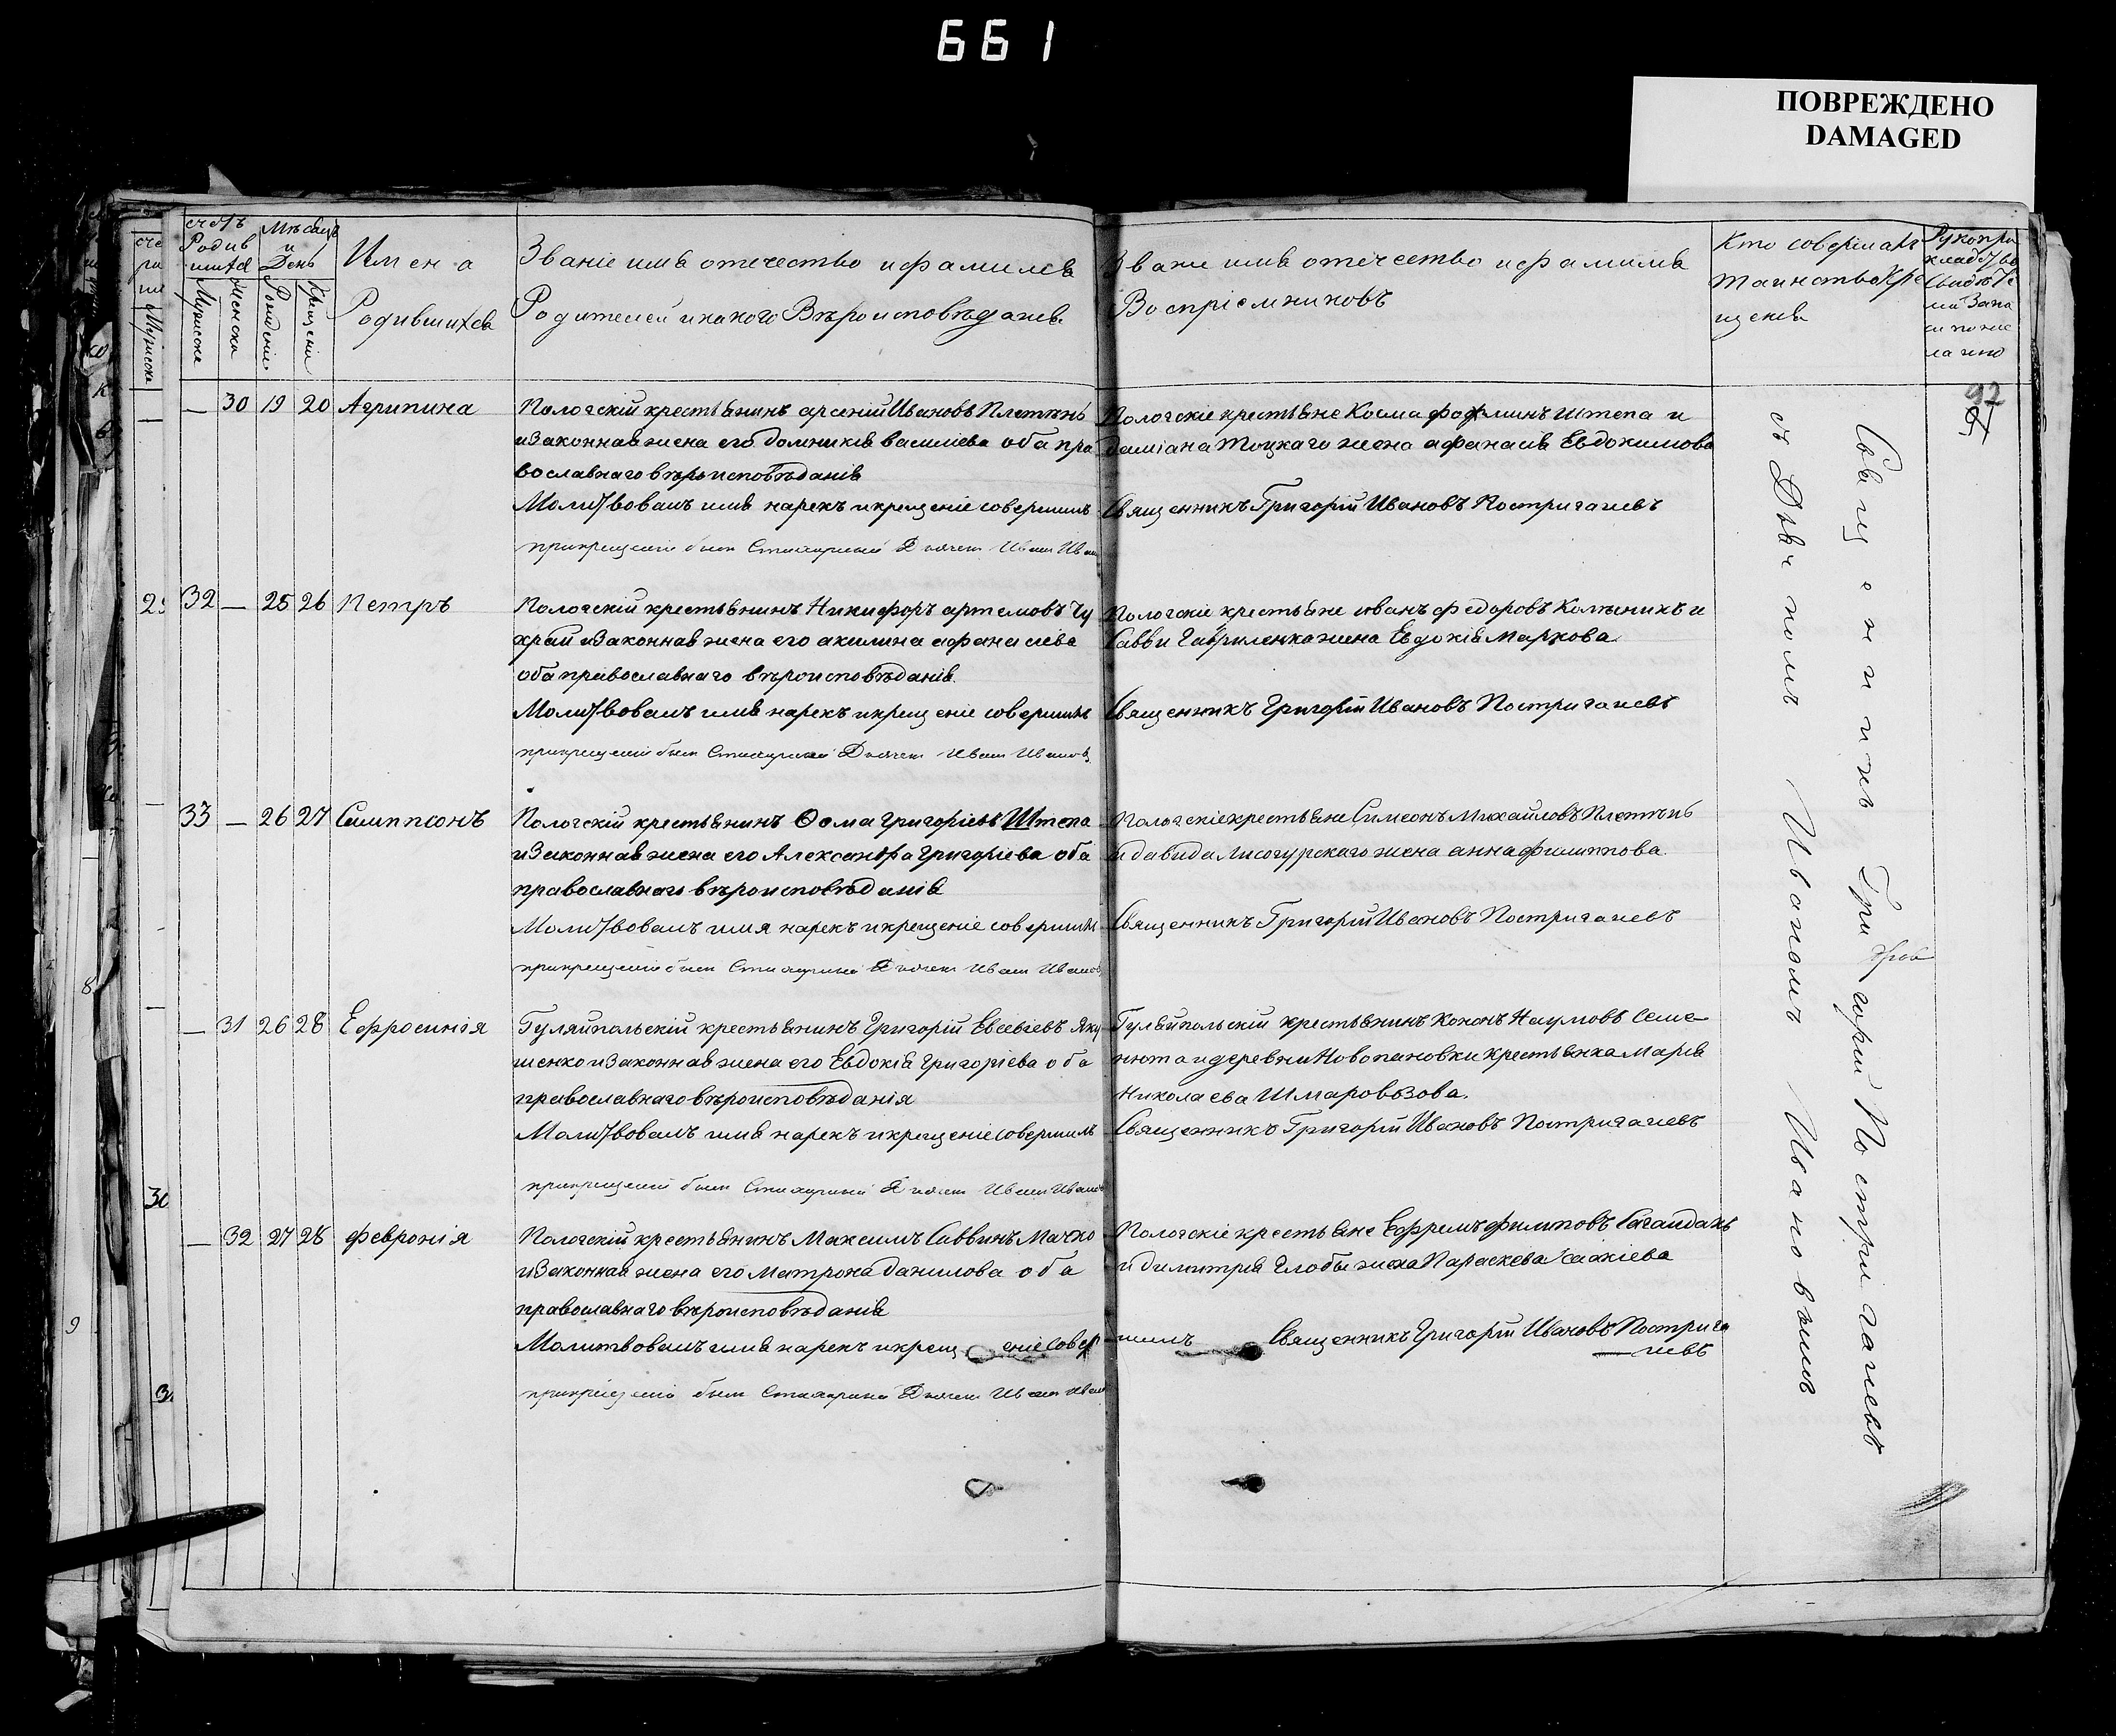 661
ПОВРЕЖДЕНО
DAMAGED
счетъ Родившихся
Мужеска
Женска
Мѣсяцъ и День
Рожденіе
Крещенія
Имена Родившихся
Званіе имя отечество и фамилія
Родителей и какого Вѣроисповѣданія
Званіе имя отечество и фамилія
Воспріемниковъ
Кто совершалъ
таинство Кре
щенія
Рукопри
кладство
Свидѣте
лей Запи
си по же
ланію
— 30 19 20 Агрипина
Пологскій крестьянинъ арсеній Ивановъ Плетѣнь
и Законная жена его домникія василіева оба пра
вославнаго вѣроисповѣданія
Молитвовалъ имя нарекъ и крещеніе совершилъ
при крещеніи былъ Стихарный Дьячекъ Иванъ Иван
Пологскіе крестьяне Косма фоминъ штепа и
даміана тоцкаго жена афанасія Евдокимова
Священникъ Григорій Ивановъ Постригачевъ
92
32 — 25 26 Петръ
Пологскій крестьянинъ Никифоръ артемовъ Чу
храй и Законная жена его акилина афанасіева
оба православнаго вѣроисповѣданія
Молитвовалъ имя нарекъ и крещеніе совершилъ
при крещеніи былъ Стихарный Дьячекъ Иванъ Ивановъ
Пологскіе крестьяне иванъ федоровъ Калѣникъ и
Саввы Гавриленка жена Евдокія Маркова
Священникъ Григорій Ивановъ Постригачевъ
33 — 26 27 Сампсонъ
Пологскій крестьянинъ Ѳома Григоріевъ Штепа
и Законная жена его Александра Григоріева оба
православнаго вѣроисповѣданія
Молитвовалъ имя нарекъ и крещеніе совершилъ
при крещеніи былъ Стихарный Дьячекъ Иванъ Иванов
Пологскіе крестьяне Симеонъ Михайловъ Плетѣнь
и давида Лисогурскаго жена анна филиппова
Священникъ Григорій Ивановъ Постригачевъ
— 31 26 28 Ефросинія
Гуляйпольскій крестьянинъ Григорій Евсевіевъ Яку
шенко и Законная жена его Евдокія Григоріева оба
православнаго вѣроисповѣданія
Молитвовалъ имя нарекъ и крещеніе совершилъ
при крещеніи былъ Стихарный Дьячекъ Иванъ Иванов
Гуляйпольскій крестьянинъ Кононъ Наумовъ Семе-
нюта и деревни Новопановки крестьянка Марія
Николаева Шмаровозова.
Священникъ Григорій Ивановъ Постригачевъ
— 32 27 28 февронія
Пологскій крестьянинъ Максимъ Саввинъ Мачко
и Законная жена его Матрона данилова оба
православнаго вѣроисповѣданія
Молитвовалъ имя нарекъ и крещеніе совер
при крещеніи былъ Стихарный Дьячекъ Иванъ Иван
Пологскіе крестьяне Ефремъ филиповъ Гагайданъ
и димитрія Глобы жена Параскева Исаакіева
шилъ Священникъ Григорій Ивановъ Пострига
чевъ
Священникъ Григорій Постригачевъ
съ Дьячкомъ Иваномъ Ивановымъ